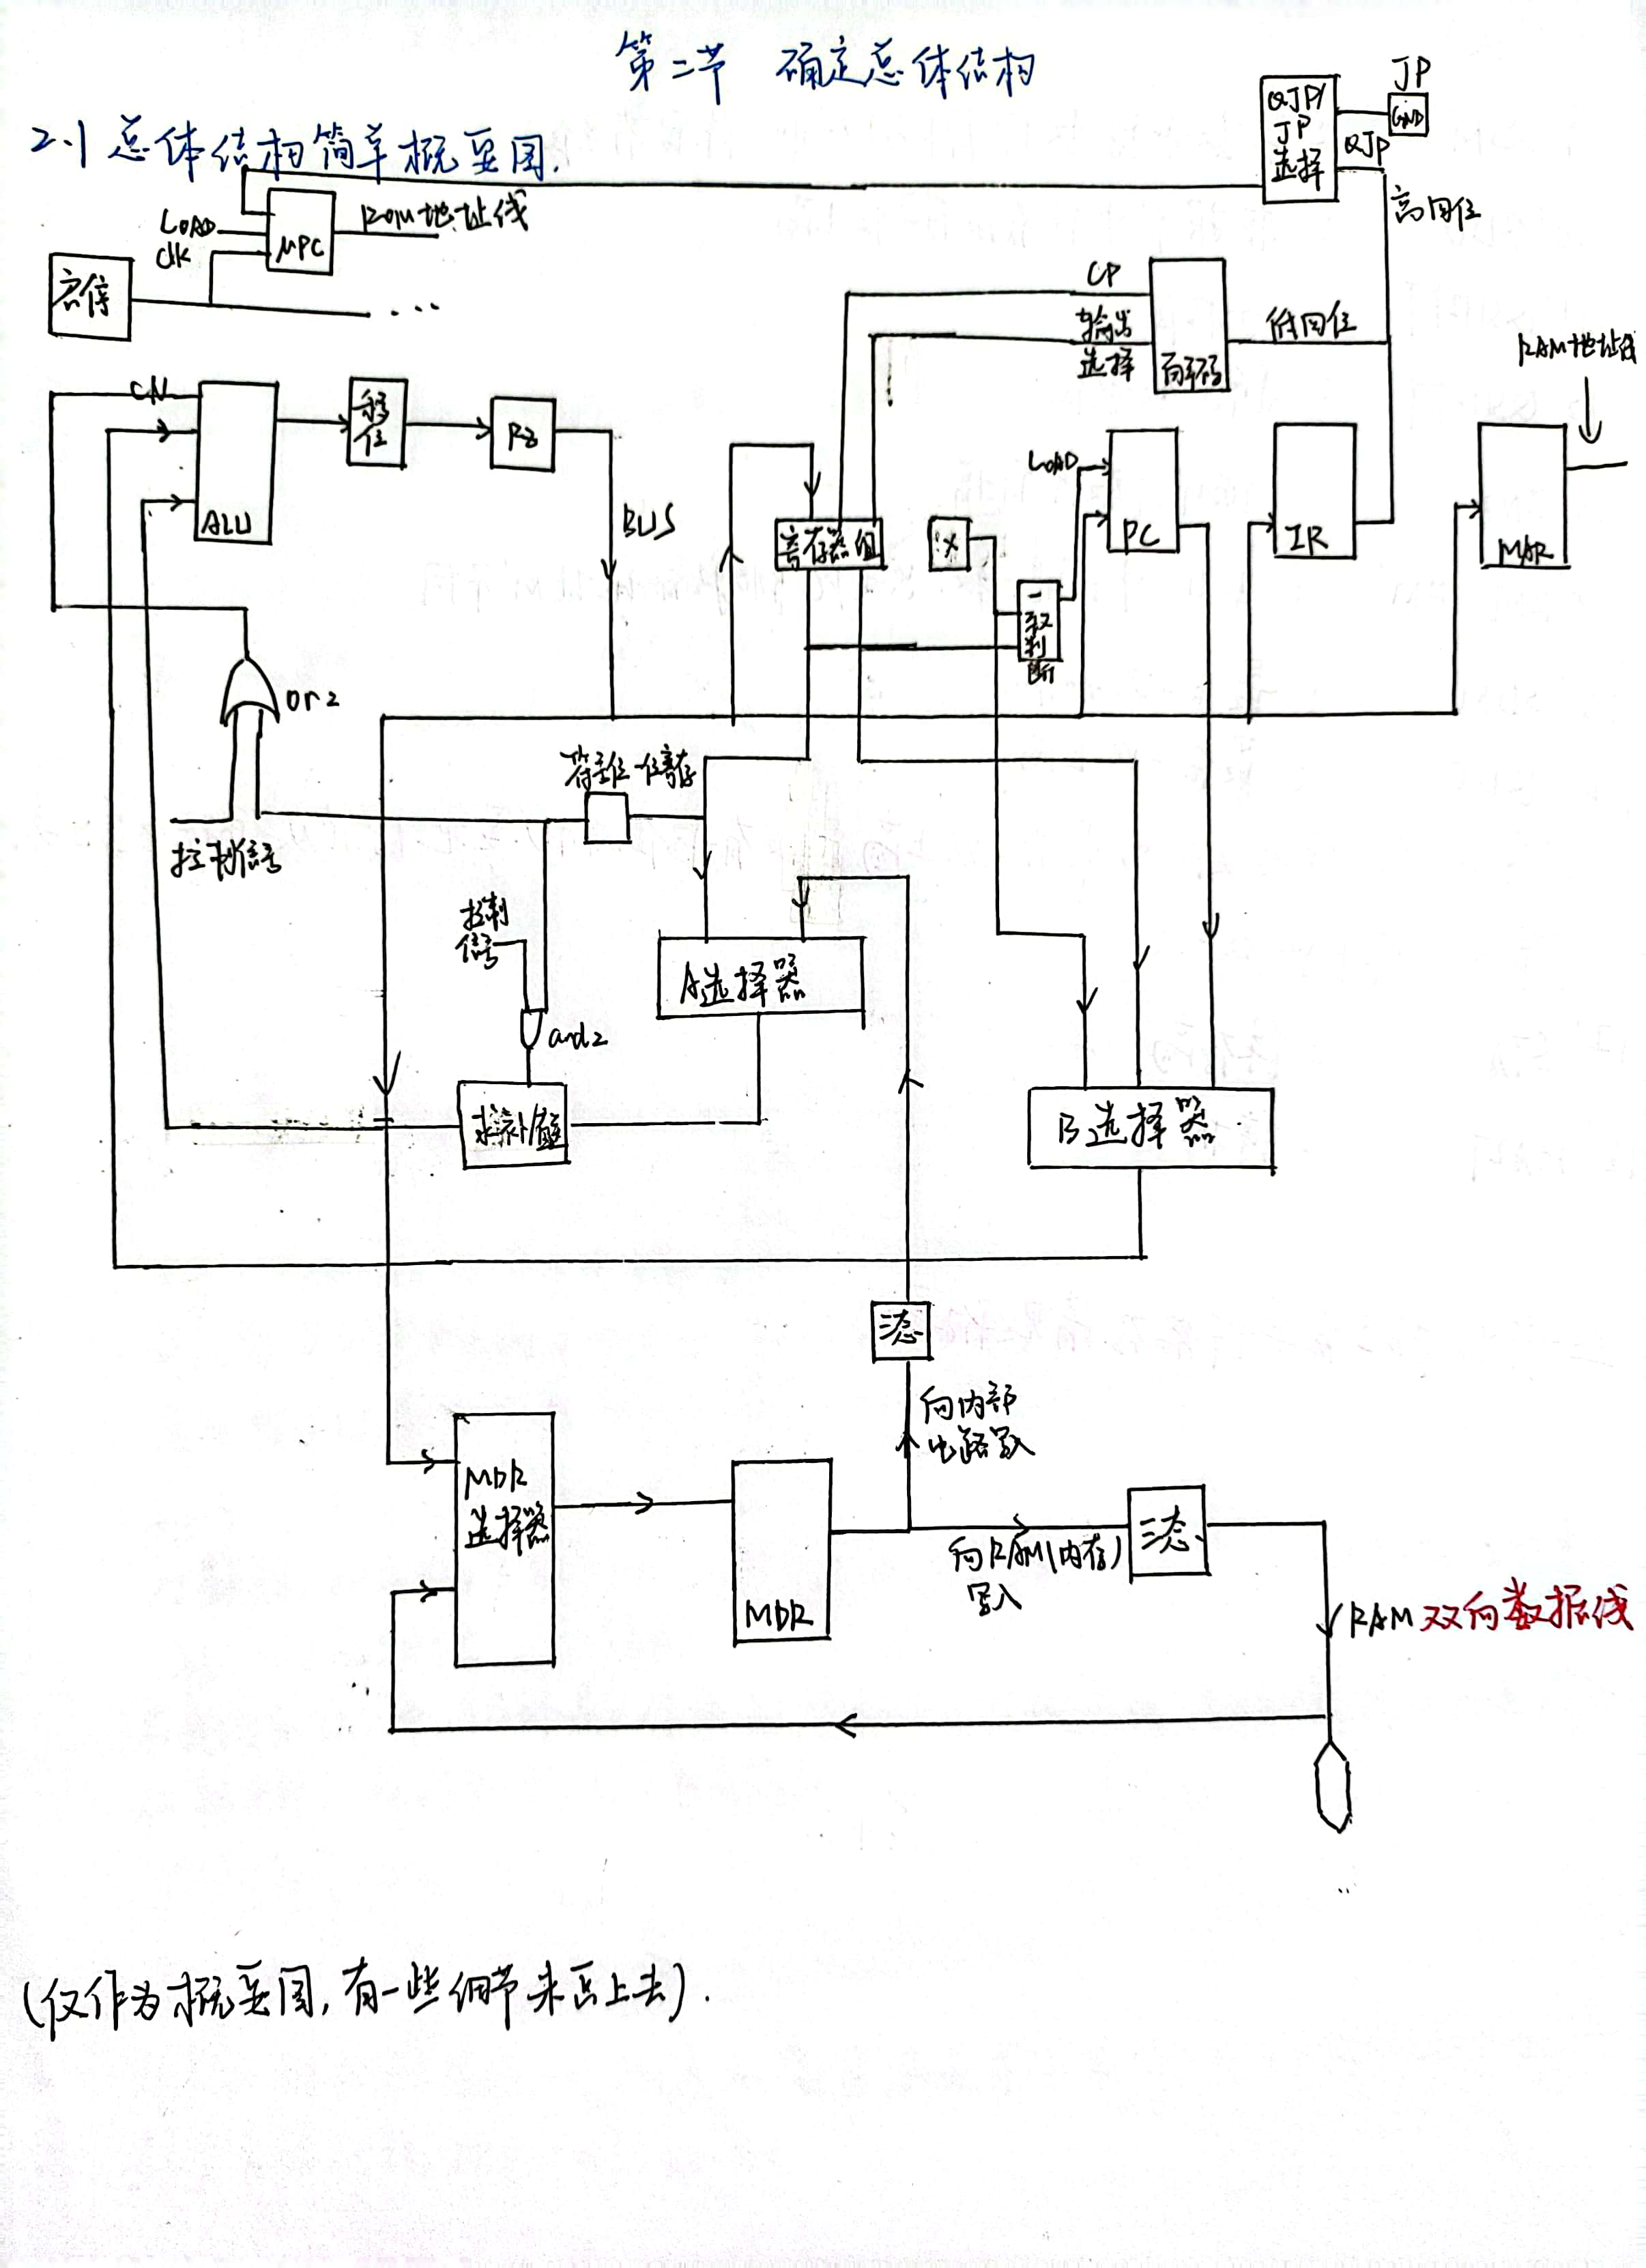 第二节 确定总体结构
2.1 总体结构简单概要图.
JP
QJP/
JP
选择
GND
QJP
高四位
LOAD
CLK
μPC
ROM地址线
启停
...
CP
输出
选择
解码
低四位
RAM地址线
CN
ALU
移
位
RZ
BUS
寄存器组
X
LOAD
PC
IR
MAR
一
致
判
断
or2
控制信号
符号位一位寄存
控制
信号
and2
A选择器
B选择器
三态
向内部
电路写入
MDR
选择器
MDR
向RAM(内存)
写入
三态
RAM 双向数据线
(仅作为概要图,有一些细节未画上去).